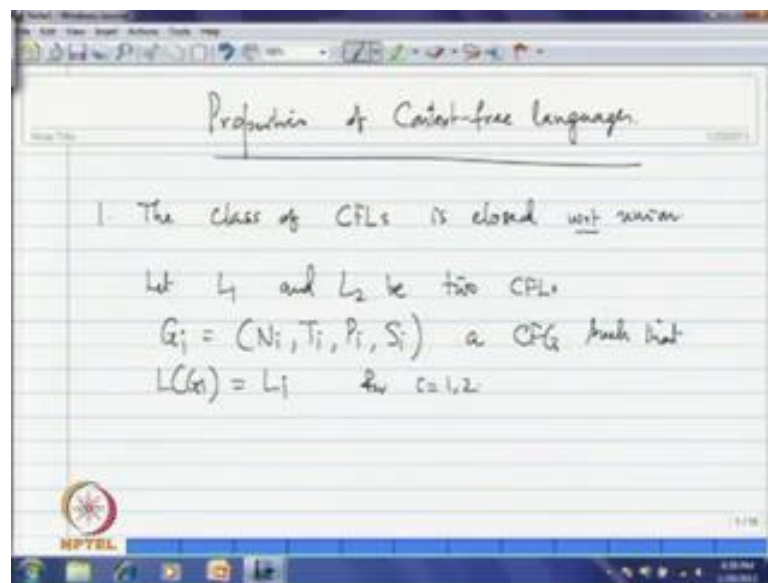 Properties of Context-free languages.
1. The class of CFLs is closed wrt union
Let L1 and L2 be two CFLs
Gi = (Ni, Ti, Pi, Si) a CFG such that
L(Gi) = Li for i=1,2
NPTEL